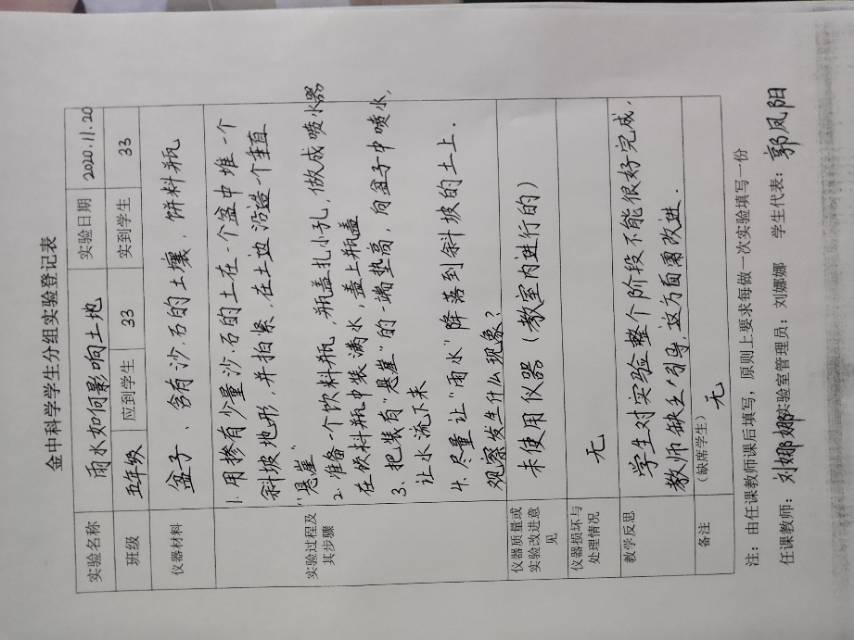 金中科学学生分组实验登记表
实验名称 雨水如何影响土地 实验日期 2020.11.20
班级 五年级 应到学生 33 实到学生 33
仪器材料 盆子、含有沙.石的土壤,饼料瓶
实验过程及其步骤
1. 用掺有少量沙.石的土在一个盆中堆一个
斜坡地形,并拍紧.在土边沿造一个垂直
“悬崖”
2. 准备一个饮料瓶,瓶盖扎小孔,做成喷水器
在饮料瓶中装满水,盖上瓶盖
3. 把装有“悬崖”的一端垫高,向盆子中喷水,
让水流下来
4. 尽量让“雨水”降落到斜坡的土上.
观察发生什么现象?
仪器质量或实验改进意见 未使用仪器(教室内进行的)
仪器损坏与处理情况 无
教学反思 学生对实验整个阶段不能很好完成,
教师缺乏引导,这方面需改进.
备注 (缺席学生) 无
注:由任课教师课后填写,原则上要求每做一次实验填写一份
任课教师:刘娜娜 实验室管理员:刘娜娜 学生代表:郭凤阳